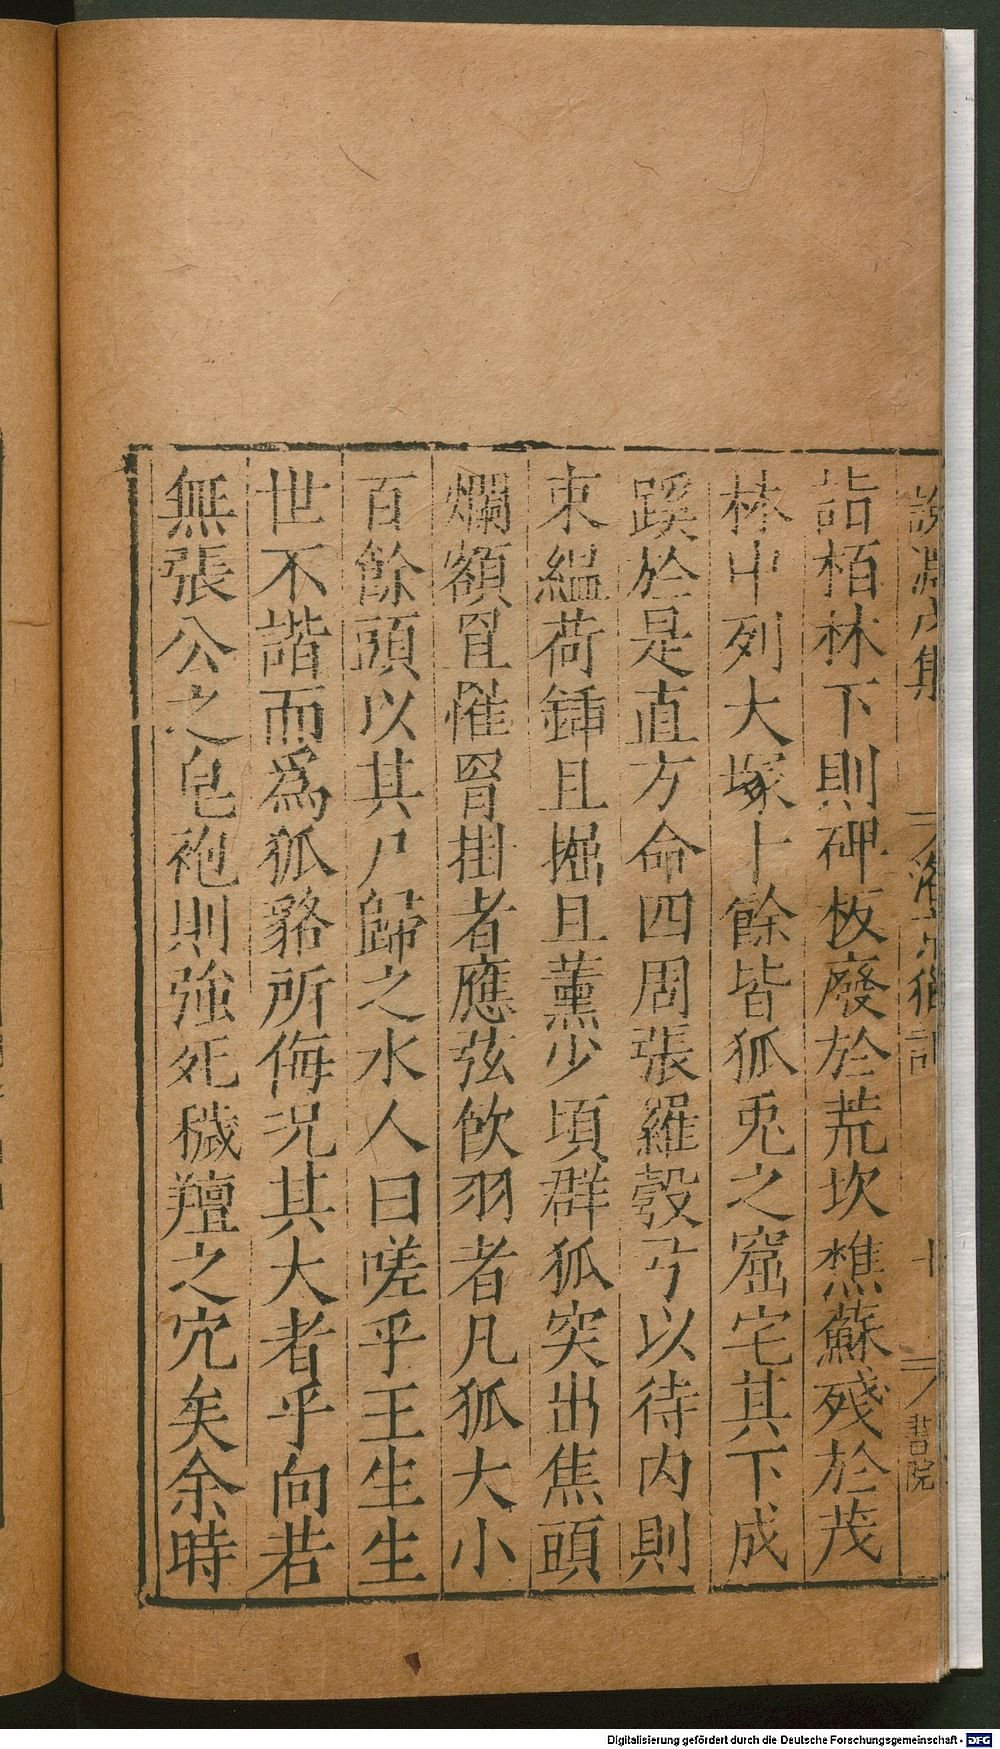 詣栢林下則碑板廢於荒坎樵蘇殘於茂
林中列大塚十餘皆狐兎之窟宅其下成
蹊於是直方命四周張羅彀弓以待内則
束緼荷鍤且掘且薰少頃群狐突出焦頭
爛額罝罹罥掛者應弦飲羽者凡狐大小
百餘頭以其尸歸之水人曰嗟乎王生生
世不諧而爲狐貉所侮况其大者乎向若
無張公之皂袍則強死穢羶之穴矣余時
書院
Digitalisierung gefördert durch die Deutsche Forschungsgemeinschaft - DFG